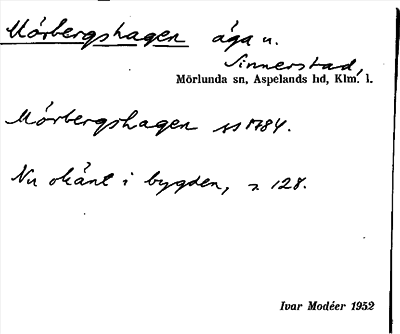 Mörbergshagen äga u.
Sinnerstad,
Mörlunda sn, Aspelands hd, Klm. l.
Mörbergshagen 1784.
Nu okänt i bygden, 128.
Ivar Modéer 1952